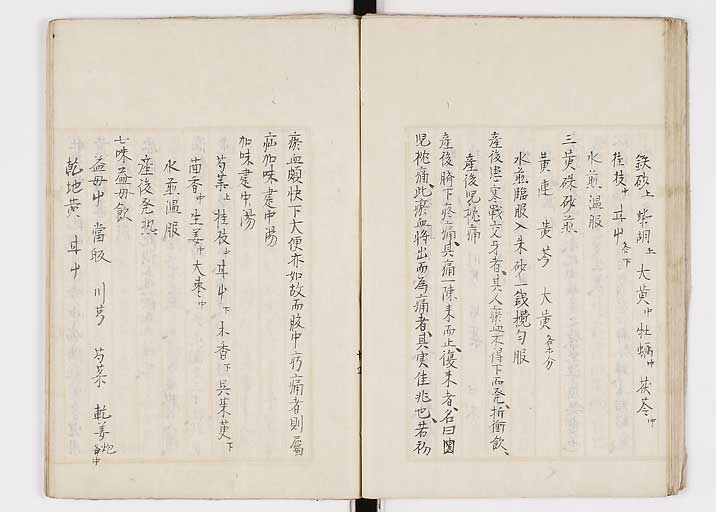 鉄砂上 柴胡上 大黄中 牡蠣中 茯苓中
桂枝中 甘中 各下
水煎温服
三黄硃砂煎
黄連 黄芩 大黄 各等分
水煎臨服入朱砂一錢攪勻服
産後悪寒戰交牙者、其人瘀血不得下而発、折衝飲、
産後児枕痛
産後臍下疼痛、其痛一陳来而止、復来者、名曰
児枕痛、此瘀血将出而為痛者、其実佳兆也、若初
瘀血頗快下大便亦如故而腹中疞痛者則屬
疝加味建中湯
加味建中湯
芍薬上 桂枝中 甘中下 木香下 呉茱萸下
茴香中 生姜中 大棗中
水煎温服
産後発熱
七味益母飲
益母中 當皈 川芎 芍薬 乾姜炮 各中
乾地黄 甘中